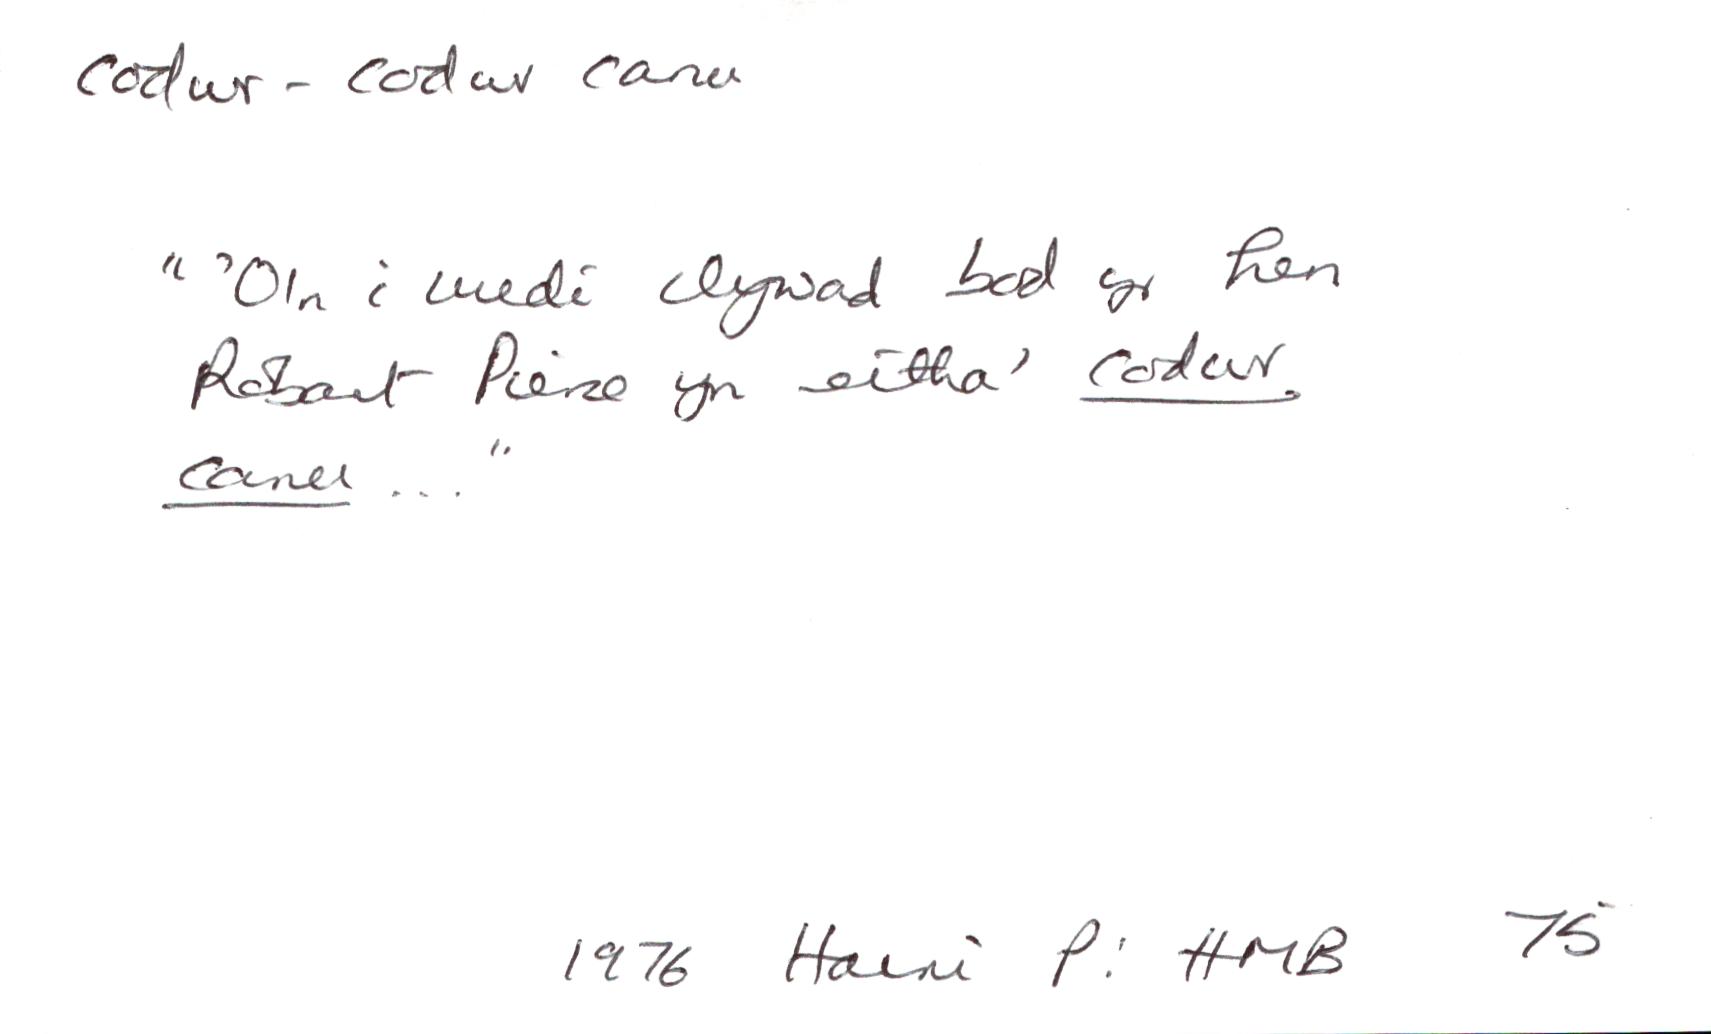 codwr - codwr canu
"'O'n i wedi clywad bod yr hen
Robart Pierse yn eitha' codwr
canu ..."
1976 Harri P: HMB 75